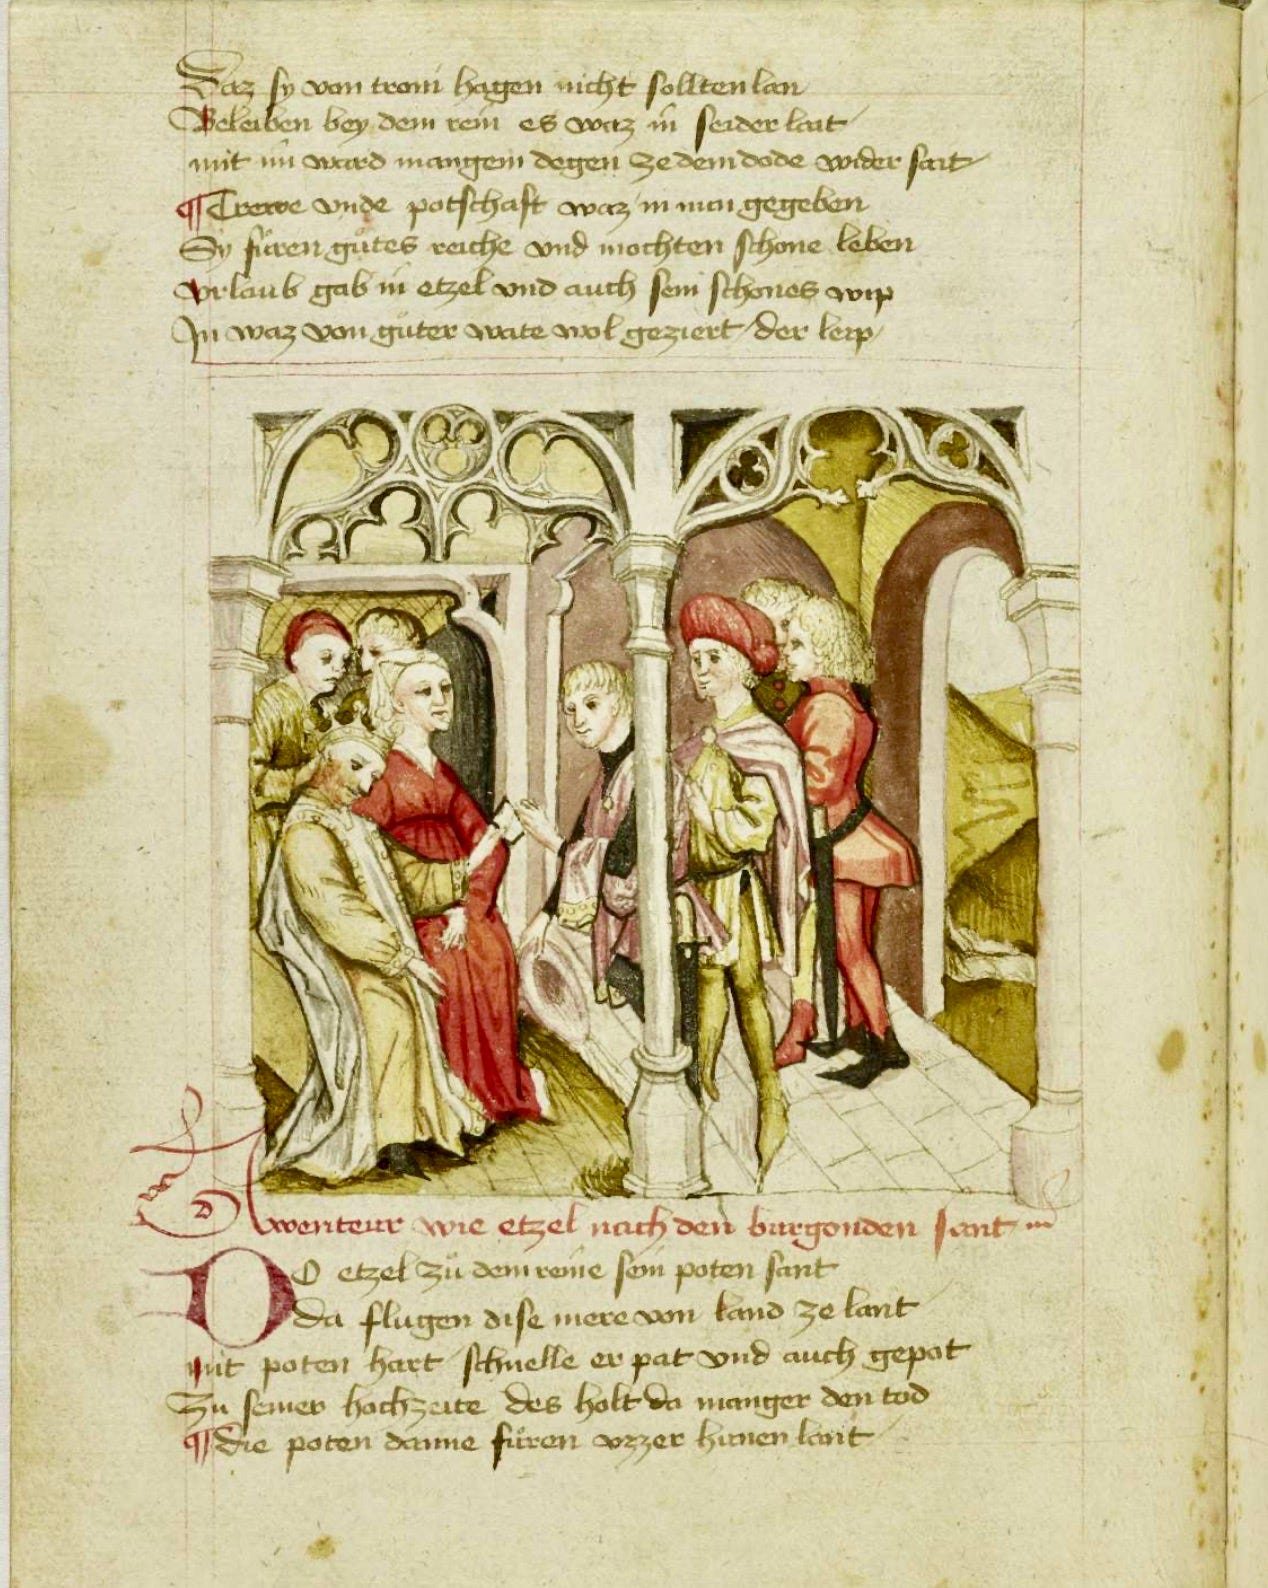 Daz sy von troni hagen nicht sollten lan
Beleiben bey dem rein es waz in seider lait
mit im ward mangem degen ze dem dode wider sait
¶ Trewe vnde potschaft waz in nun gegeben
Sy fůren gůtes reiche vnd mochten schone leben
vrlaub gab in etzel vnd auch sein schones wip
In waz von gůter wate wol geziert der leip
Awenteur wie etzel nach den burgonden sant
DO etzel zů dem reine sein poten sant
Da flugen dise mere von land ze lant
mit poten hart schnelle er pat vnd auch gepot
Zu seiner hochzeite des holt da manger den tod
¶ die poten danne fůren vzzer hunen lant